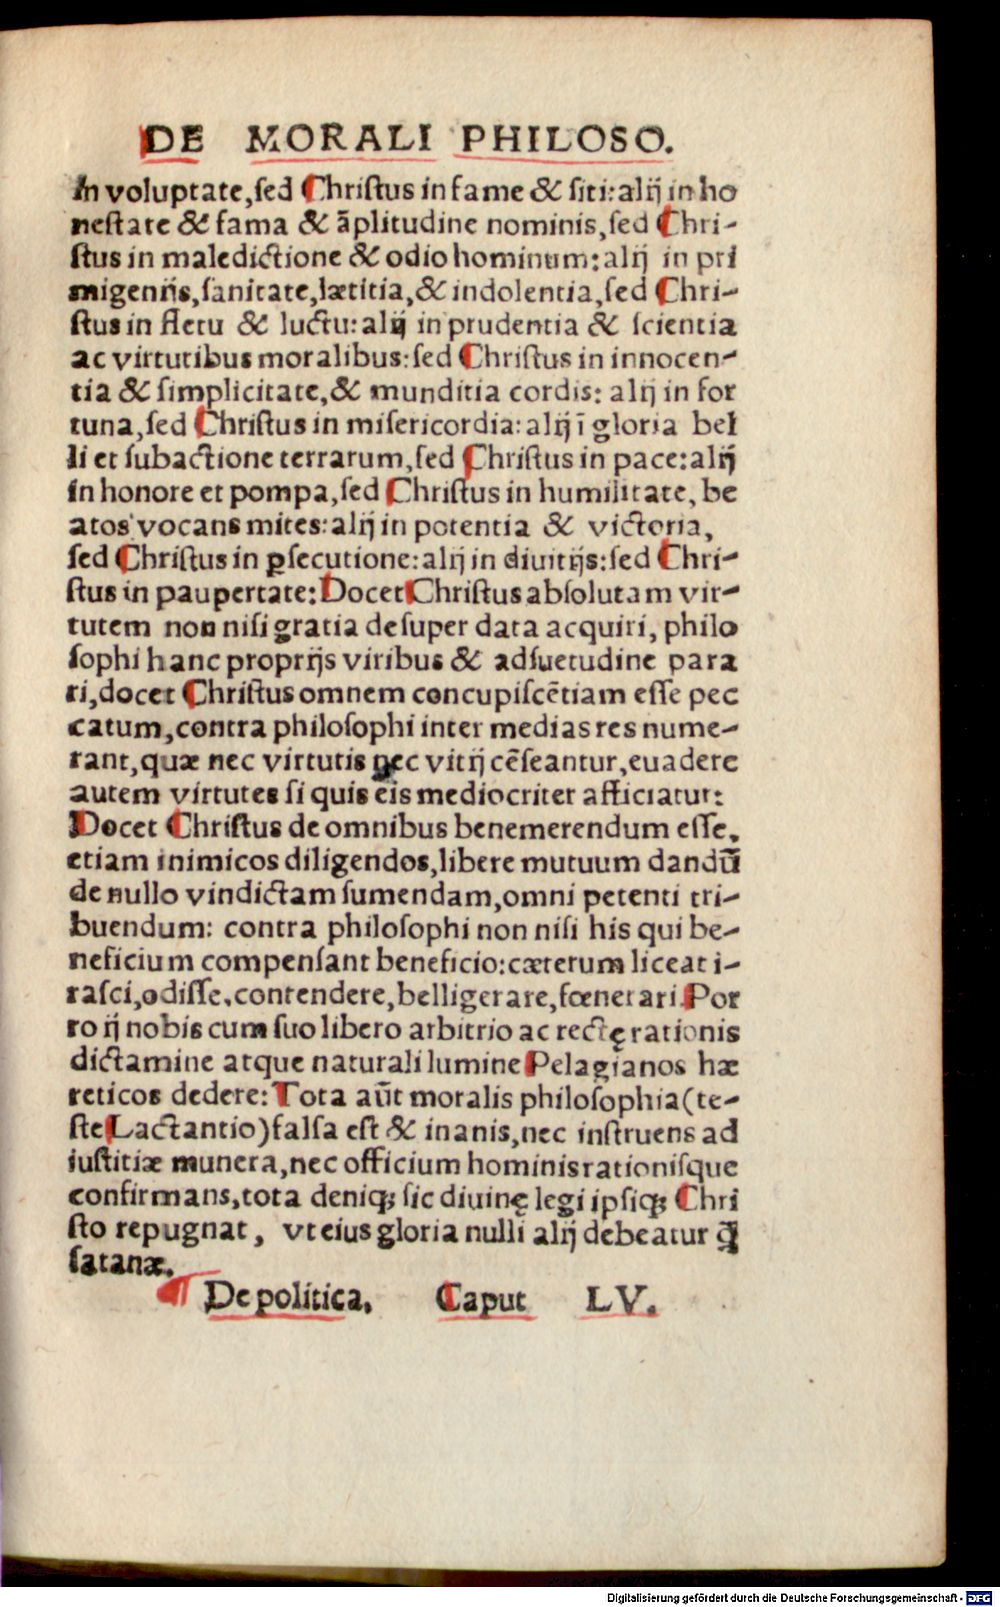 DE MORALI PHILOSO.
in voluptate,ſed Chriſtus in fame & ſiti:alij in ho
neſtate & fama & āplitudine nominis,ſed Chri-
ſtus in maledictione & odio hominum:alij in pri
migenijs,ſanitate,lætitia,& indolentia,ſed Chri-
ſtus in fletu & luctu:alij in prudentia & ſcientia
ac virtutibus moralibus:ſed Chriſtus in innocen-
tia & ſimplicitate,& munditia cordis: alij in for
tuna,ſed Chriſtus in miſericordia:alij ī gloria bel
li et ſubactione terrarum,ſed Chriſtus in pace:alij
in honore et pompa,ſed Chriſtus in humilitate, be
atos vocans mites:alij in potentia & victoria,
ſed Chriſtus in ꝑſecutione:alij in diuitijs:ſed Chri-
ſtus in paupertate:Docet Chriſtus abſolutam vir-
tutem non niſi gratia deſuper data acquiri, philo
ſophi hanc proprijs viribus & adſuetudine para
ri,docet Chriſtus omnem concupiſcētiam eſſe pec
catum,contra philoſophi inter medias res nume-
rant,quæ nec virtutis nec vitij cēſeantur,euadere
autem virtutes ſi quis eis mediocriter afficiatur:
Docet Chriſtus de omnibus benemerendum eſſe,
etiam inimicos diligendos,libere mutuum dandū
de nullo vindictam ſumendam,omni petenti tri-
buendum: contra philoſophi non niſi his qui be-
neficium compenſant beneficio:cæterum liceat i-
raſci,odiſſe,contendere,belligerare,fœnerari.Por
ro ij nobis cum ſuo libero arbitrio ac rectę rationis
dictamine atque naturali lumine Pelagianos hæ
reticos dedere: Tota aūt moralis philoſophia(te-
ſte Lactantio)falſa eſt & inanis,nec inſtruens ad
iuſtitiæ munera,nec officium hominis rationiſque
confirmans,tota deniqꝫ ſic diuinę legi ipſiqꝫ Chri
ſto repugnat, vt eius gloria nulli alij debeatur q̄
ſatanæ.
¶ De politica. Caput LV.
Digitalisierung gefördert durch die Deutsche Forschungsgemeinschaft - DFG